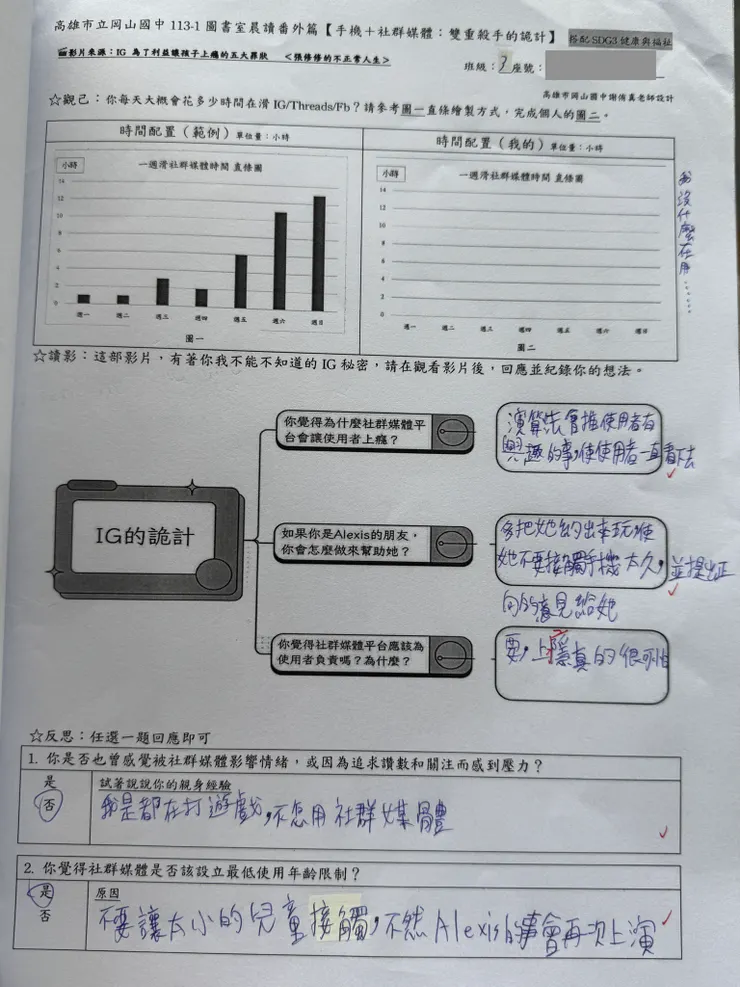 高雄市立岡山國中 113-1 圖書室晨讀番外篇【手機＋社群媒體：雙重殺手的詭計】 搭配SDG3健康與福祉
影片來源：IG 為了利益讓孩子上癮的五大罪狀 <張修修的不正常人生>
班級：7 座號：
高雄市岡山國中謝侑真老師設計
☆觀己：你每天大概會花多少時間在滑 IG/Threads/Fb？請參考圖一直條繪製方式，完成個人的圖二。
時間配置（範例）單位量：小時
時間配置（我的）單位量：小時
小時
一週滑社群媒體時間 直條圖
14
12
10
8
6
4
2
0
週一 週二 週三 週四 週五 週六 週日
圖一
小時
一週滑社群媒體時間 直條圖
14
12
10
8
6
4
2
0
週一 週二 週三 週四 週五 週六 週日
圖二
我沒什麼在用……
☆讀影：這部影片，有著你我不能不知道的 IG 秘密，請在觀看影片後，回應並紀錄你的想法。
IG的詭計
你覺得為什麼社群媒體平
台會讓使用者上癮？
演算法會推使用者有
興趣的事，使使用者一直看下去
如果你是Alexis的朋友，
你會怎麼做來幫助她？
多把她約出來玩，使
她不要接觸手機太久，並提出正
向的意見給她
你覺得社群媒體平台應該為
使用者負責嗎？為什麼？
要，上癮真的很可怕
☆反思：任選一題回應即可
1. 你是否也曾感覺被社群媒體影響情緒，或因為追求讚數和關注而感到壓力？
是
否
試著說說你的親身經驗
我是都在打遊戲，不怎用社群媒體
2. 你覺得社群媒體是否該設立最低使用年齡限制？
是
否
原因
不要讓太小的兒童接觸，不然Alexis的事會再次上演